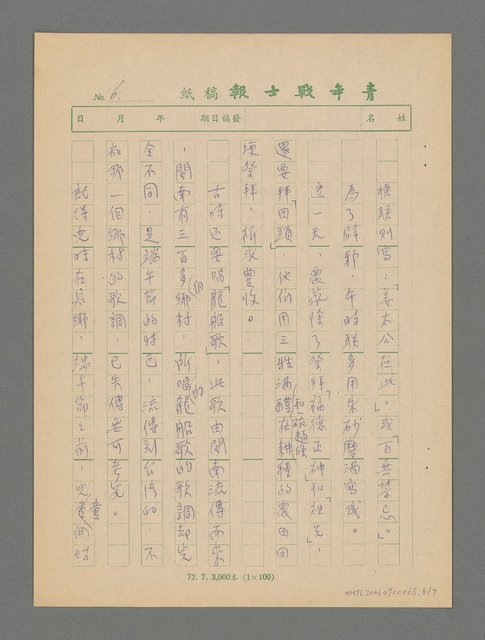 No. 6.
青年戰士報稿紙
姓名 發稿日期 年 月 日
橫联則寫：「姜太公在此。」或「百無禁忌。」
為了辟邪，午時联多用朱砂磨酒寫成。
這一天，農家除了祭拜「福德正神」和「祖先」，
還要拜「田頭」，他們用三牲酒醴和一碗麵線在耕種的農田田
埂祭拜，祈求豐收。
古時還要唱「龍船歌」，此歌由閩南流傳而來
，閩南有三百多個鄉村，所唱的龍船歌的歌調却完
全不同，是端午節的特色，流傳到台灣的，不
知那一個鄉村的歌調，已失傳無可考究。
記得兒時在家鄉，端午節之前，兒童用
72. 7. 3,000本 (1×100)
NMTL20060900065.6/7